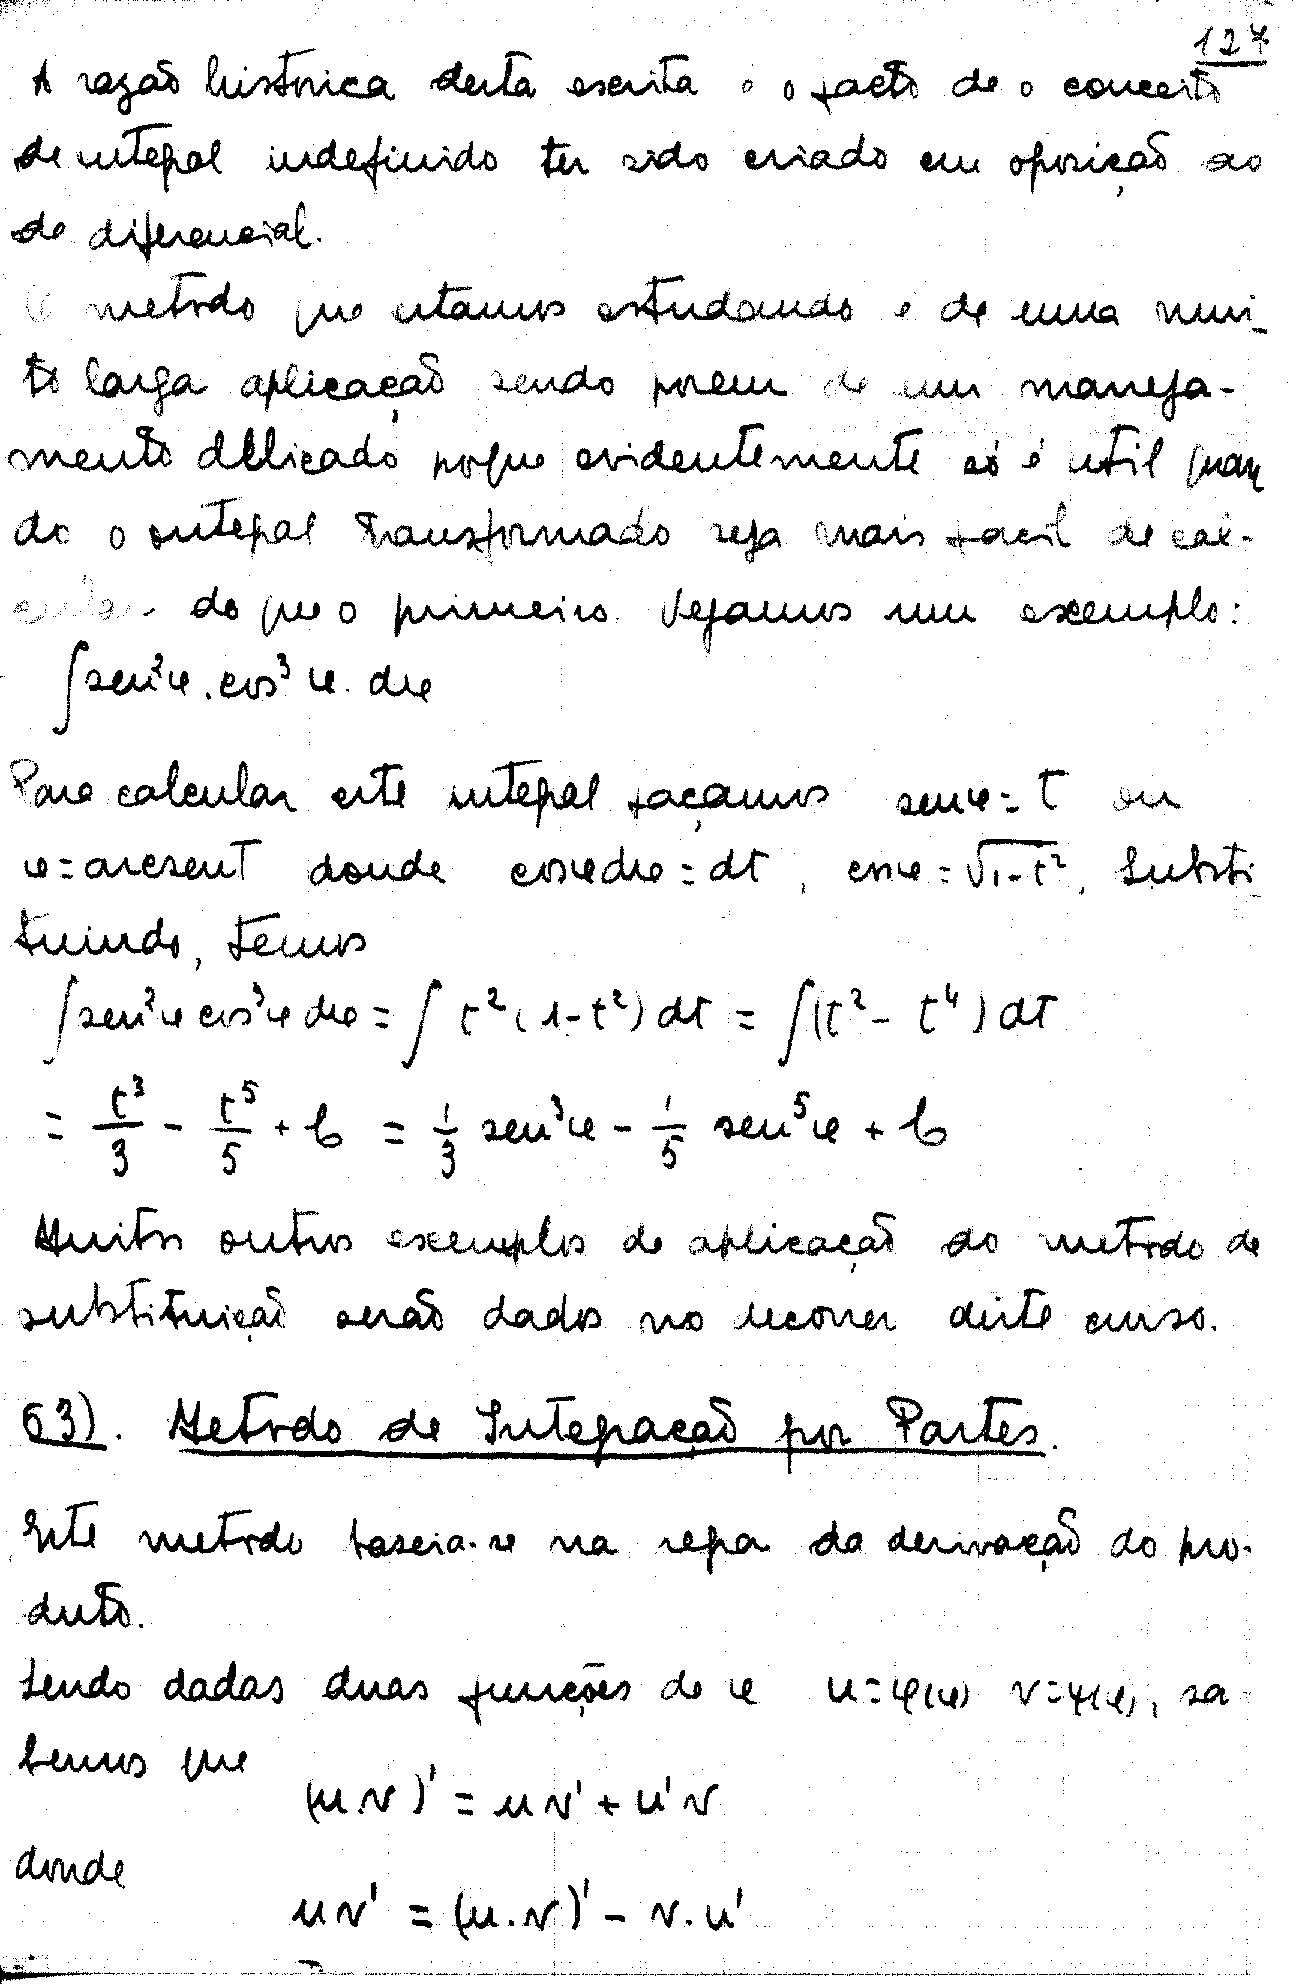 127
A razão historica desta escrita é o facto de o conceito
de integral indefinido ter sido criado em oposição ao
de diferencial.
O metodo que estamos estudando é de uma mui-
to larga aplicação sendo porem de um maneja-
mento delicado porque evidentemente só é util quan
do o integral transformado seja mais facil de cal-
cular do que o primeiro. Vejamos um exemplo:
∫sen²x.cos³x.dx
Para calcular este integral façamos senx=t ou
x=arcsent donde cosxdx=dt, cosx=√1-t². Substi
tuindo, temos
∫sen²x cos³x dx = ∫ t²(1-t²)dt = ∫(t²-t⁴)dt
= t³/3 - t⁵/5 + C = 1/3 sen³x - 1/5 sen⁵x + C
Muitos outros exemplos de aplicação do metodo de
substituição serão dados no decorrer deste curso.
63). Metodo de Integração por Partes.
Este metodo baseia-se na regra da derivação do pro-
duto.
Sendo dadas duas funções de x u=φ(x) v=ψ(x), sa-
bemos que
(u.v)' = uv' + u'v
donde
uv' = (u.v)' - v.u'